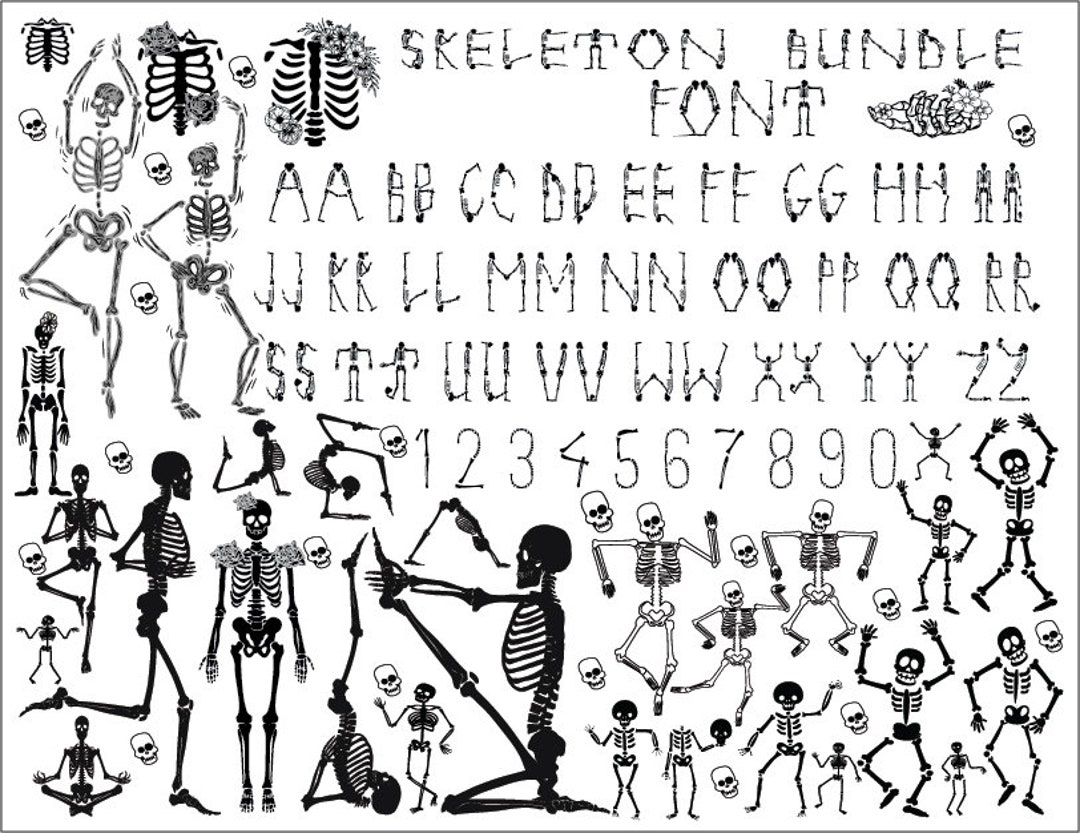 SKELETON BUNDLE
FONT
AA BB CC DD EE FF GG HH II
JJ KK LL MM NN OO PP QQ RR
SS TT UU VV WW XX YY ZZ
1 2 3 4 5 6 7 8 9 0